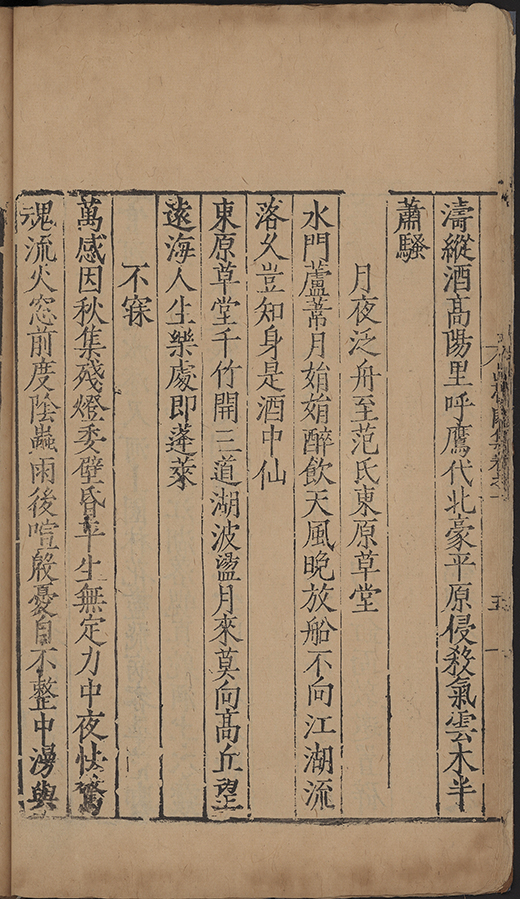 濤縱酒高陽里呼鷹代北豪平原侵殺氣雲木半
蕭騷
月夜泛舟至范氏東原草堂
水門蘆葦月娟娟醉飲天風晚放船不向江湖流
落久豈知身是酒中仙
東原草堂千竹開三道湖波盪月來莫向高丘望
遠海人生樂處即蓬萊
不寐
萬感因秋集殘燈委壁昏平生無定力中夜怯驚
魂流火窓前度陰蟲雨後喧殷憂自不整中湯與